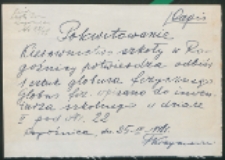 Odpis
Pokwitowanie
Kierownictwo szkoły w Ro-
goźnicy potwierdza odbiór
1 sztuk globusa fizycznego
globus fiz. wpisano do inwen-
tarza szkolnego w dziale
V pod Nr. 22
Rogoźnica, dn. 25-IV